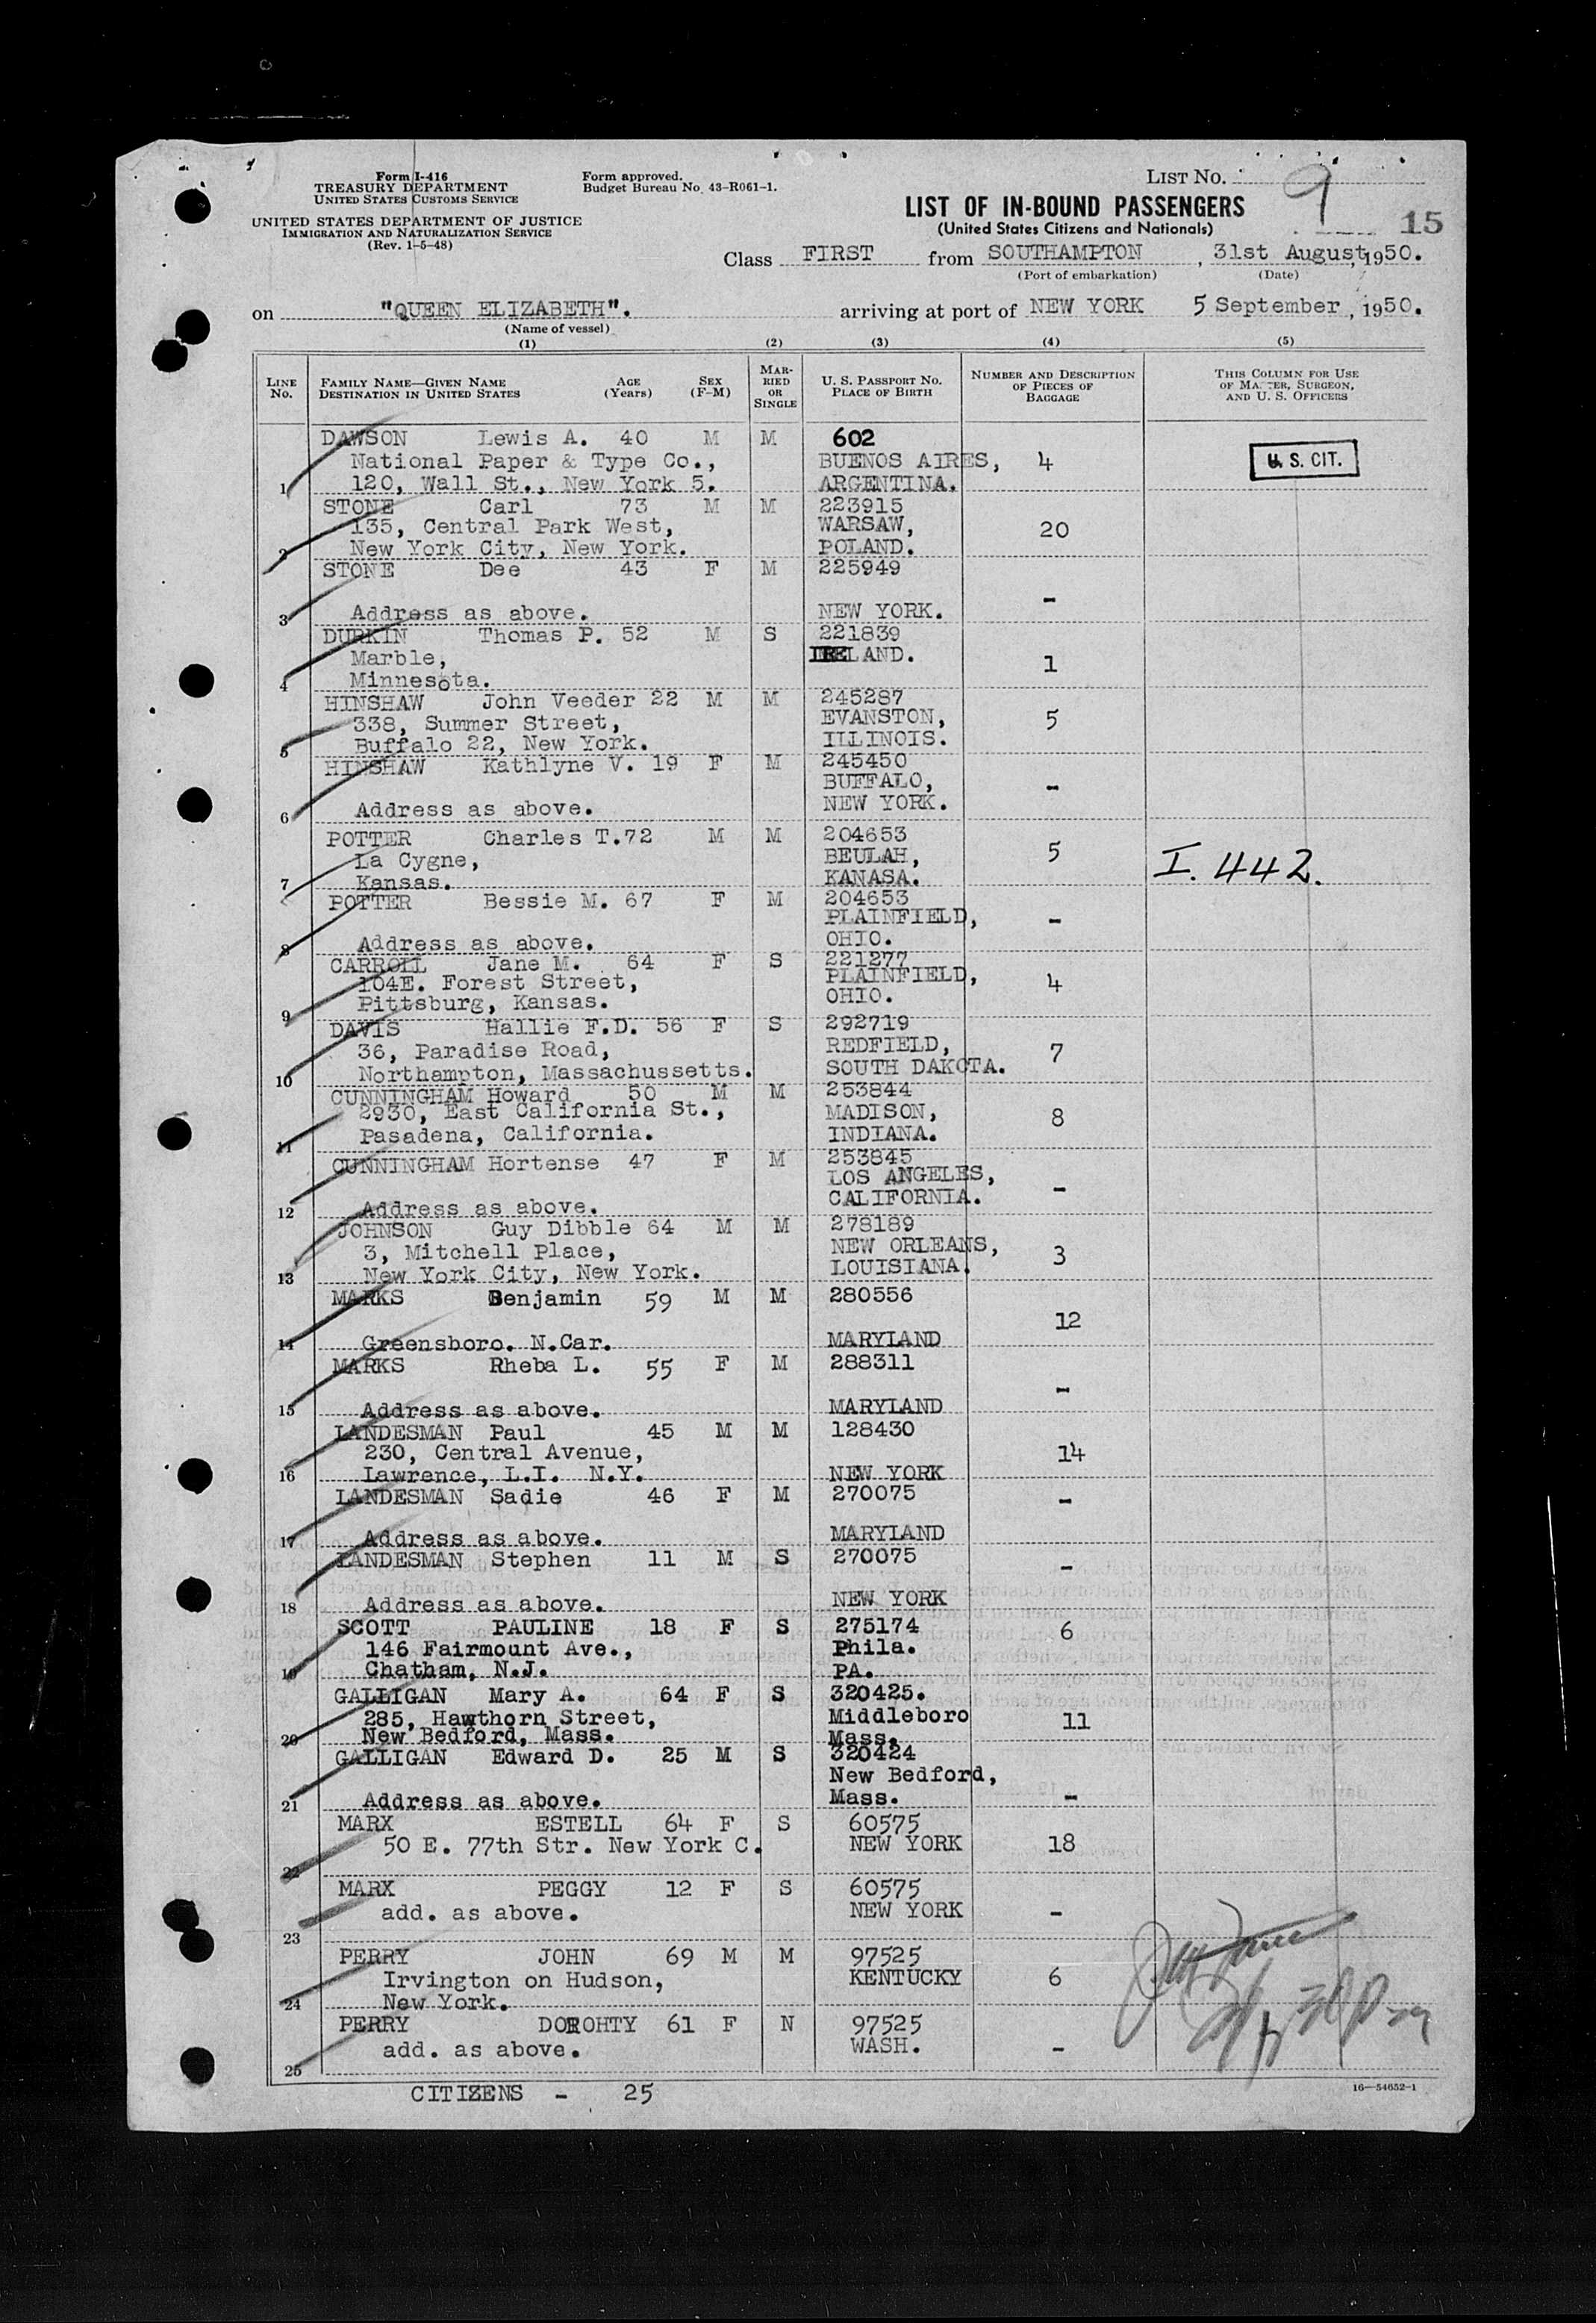 Form I-416
TREASURY DEPARTMENT
UNITED STATES CUSTOMS SERVICE
UNITED STATES DEPARTMENT OF JUSTICE
IMMIGRATION AND NATURALIZATION SERVICE
(Rev. 1-5-48)
Form approved.
Budget Bureau No. 43-R061-1.
LIST NO. 9
15
LIST OF IN-BOUND PASSENGERS
(United States Citizens and Nationals)
Class FIRST from SOUTHAMPTON, 31st August, 1950.
(Port of embarkation) (Date)
on "QUEEN ELIZABETH". arriving at port of NEW YORK 5 September, 1950.
(Name of vessel)
(1) (2) (3) (4) (5)
LINE NO.
FAMILY NAME—GIVEN NAME
DESTINATION IN UNITED STATES
AGE (Years)
SEX (F-M)
MARRIED OR SINGLE
U. S. PASSPORT NO.
PLACE OF BIRTH
NUMBER AND DESCRIPTION OF PIECES OF BAGGAGE
THIS COLUMN FOR USE OF MASTER, SURGEON, AND U. S. OFFICERS
DAWSON Lewis A. 40 M M 602
National Paper & Type Co., BUENOS AIRES, 4 U. S. CIT.
1 120, Wall St., New York 5. ARGENTINA.
STONE Carl 73 M M 223915
135, Central Park West, WARSAW, 20
2 New York City, New York. POLAND.
STONE Dee 43 F M 225949
-
3 Address as above. NEW YORK.
DURKIN Thomas P. 52 M S 221839
Marble, IRELAND. 1
4 Minnesota.
HINSHAW John Veeder 22 M M 245287
338, Summer Street, EVANSTON, 5
5 Buffalo 22, New York. ILLINOIS.
HINSHAW Kathlyne V. 19 F M 245450
BUFFALO, -
6 Address as above. NEW YORK.
POTTER Charles T. 72 M M 204653
La Cygne, BEULAH, 5 I. 442.
7 Kansas. KANASA.
POTTER Bessie M. 67 F M 204653
PLAINFIELD, -
8 Address as above. OHIO.
CARROLL Jane M. 64 F S 221277
104E. Forest Street, PLAINFIELD, 4
9 Pittsburg, Kansas. OHIO.
DAVIS Hallie F.D. 56 F S 292719
36, Paradise Road, REDFIELD, 7
10 Northampton, Massachussetts. SOUTH DAKOTA.
CUNNINGHAM Howard 50 M M 253844
2930, East California St., MADISON, 8
11 Pasadena, California. INDIANA.
CUNNINGHAM Hortense 47 F M 253845
LOS ANGELES, -
12 Address as above. CALIFORNIA.
JOHNSON Guy Dibble 64 M M 278189
3, Mitchell Place, NEW ORLEANS, 3
13 New York City, New York. LOUISIANA.
MARKS Benjamin 59 M M 280556
12
14 Greensboro. N.Car. MARYLAND
MARKS Rheba L. 55 F M 288311
-
15 Address as above. MARYLAND
LANDESMAN Paul 45 M M 128430
230, Central Avenue, 14
16 Lawrence, L.I. N.Y. NEW YORK
LANDESMAN Sadie 46 F M 270075
-
17 Address as above. MARYLAND
LANDESMAN Stephen 11 M S 270075
-
18 Address as above. NEW YORK
SCOTT PAULINE 18 F S 275174 6
146 Fairmount Ave., Phila.
19 Chatham, N.J. PA.
GALLIGAN Mary A. 64 F S 320425.
285, Hawthorn Street, Middleboro 11
20 New Bedford, Mass. Mass.
GALLIGAN Edward D. 25 M S 320424
New Bedford,
21 Address as above. Mass. -
MARX ESTELL 64 F S 60575
50 E. 77th Str. New York C. NEW YORK 18
22
MARX PEGGY 12 F S 60575
add. as above. NEW YORK -
23
PERRY JOHN 69 M M 97525
Irvington on Hudson, KENTUCKY 6
24 New York.
PERRY DOROHTY 61 F N 97525
add. as above. WASH. -
25
CITIZENS - 25
16—54652-1